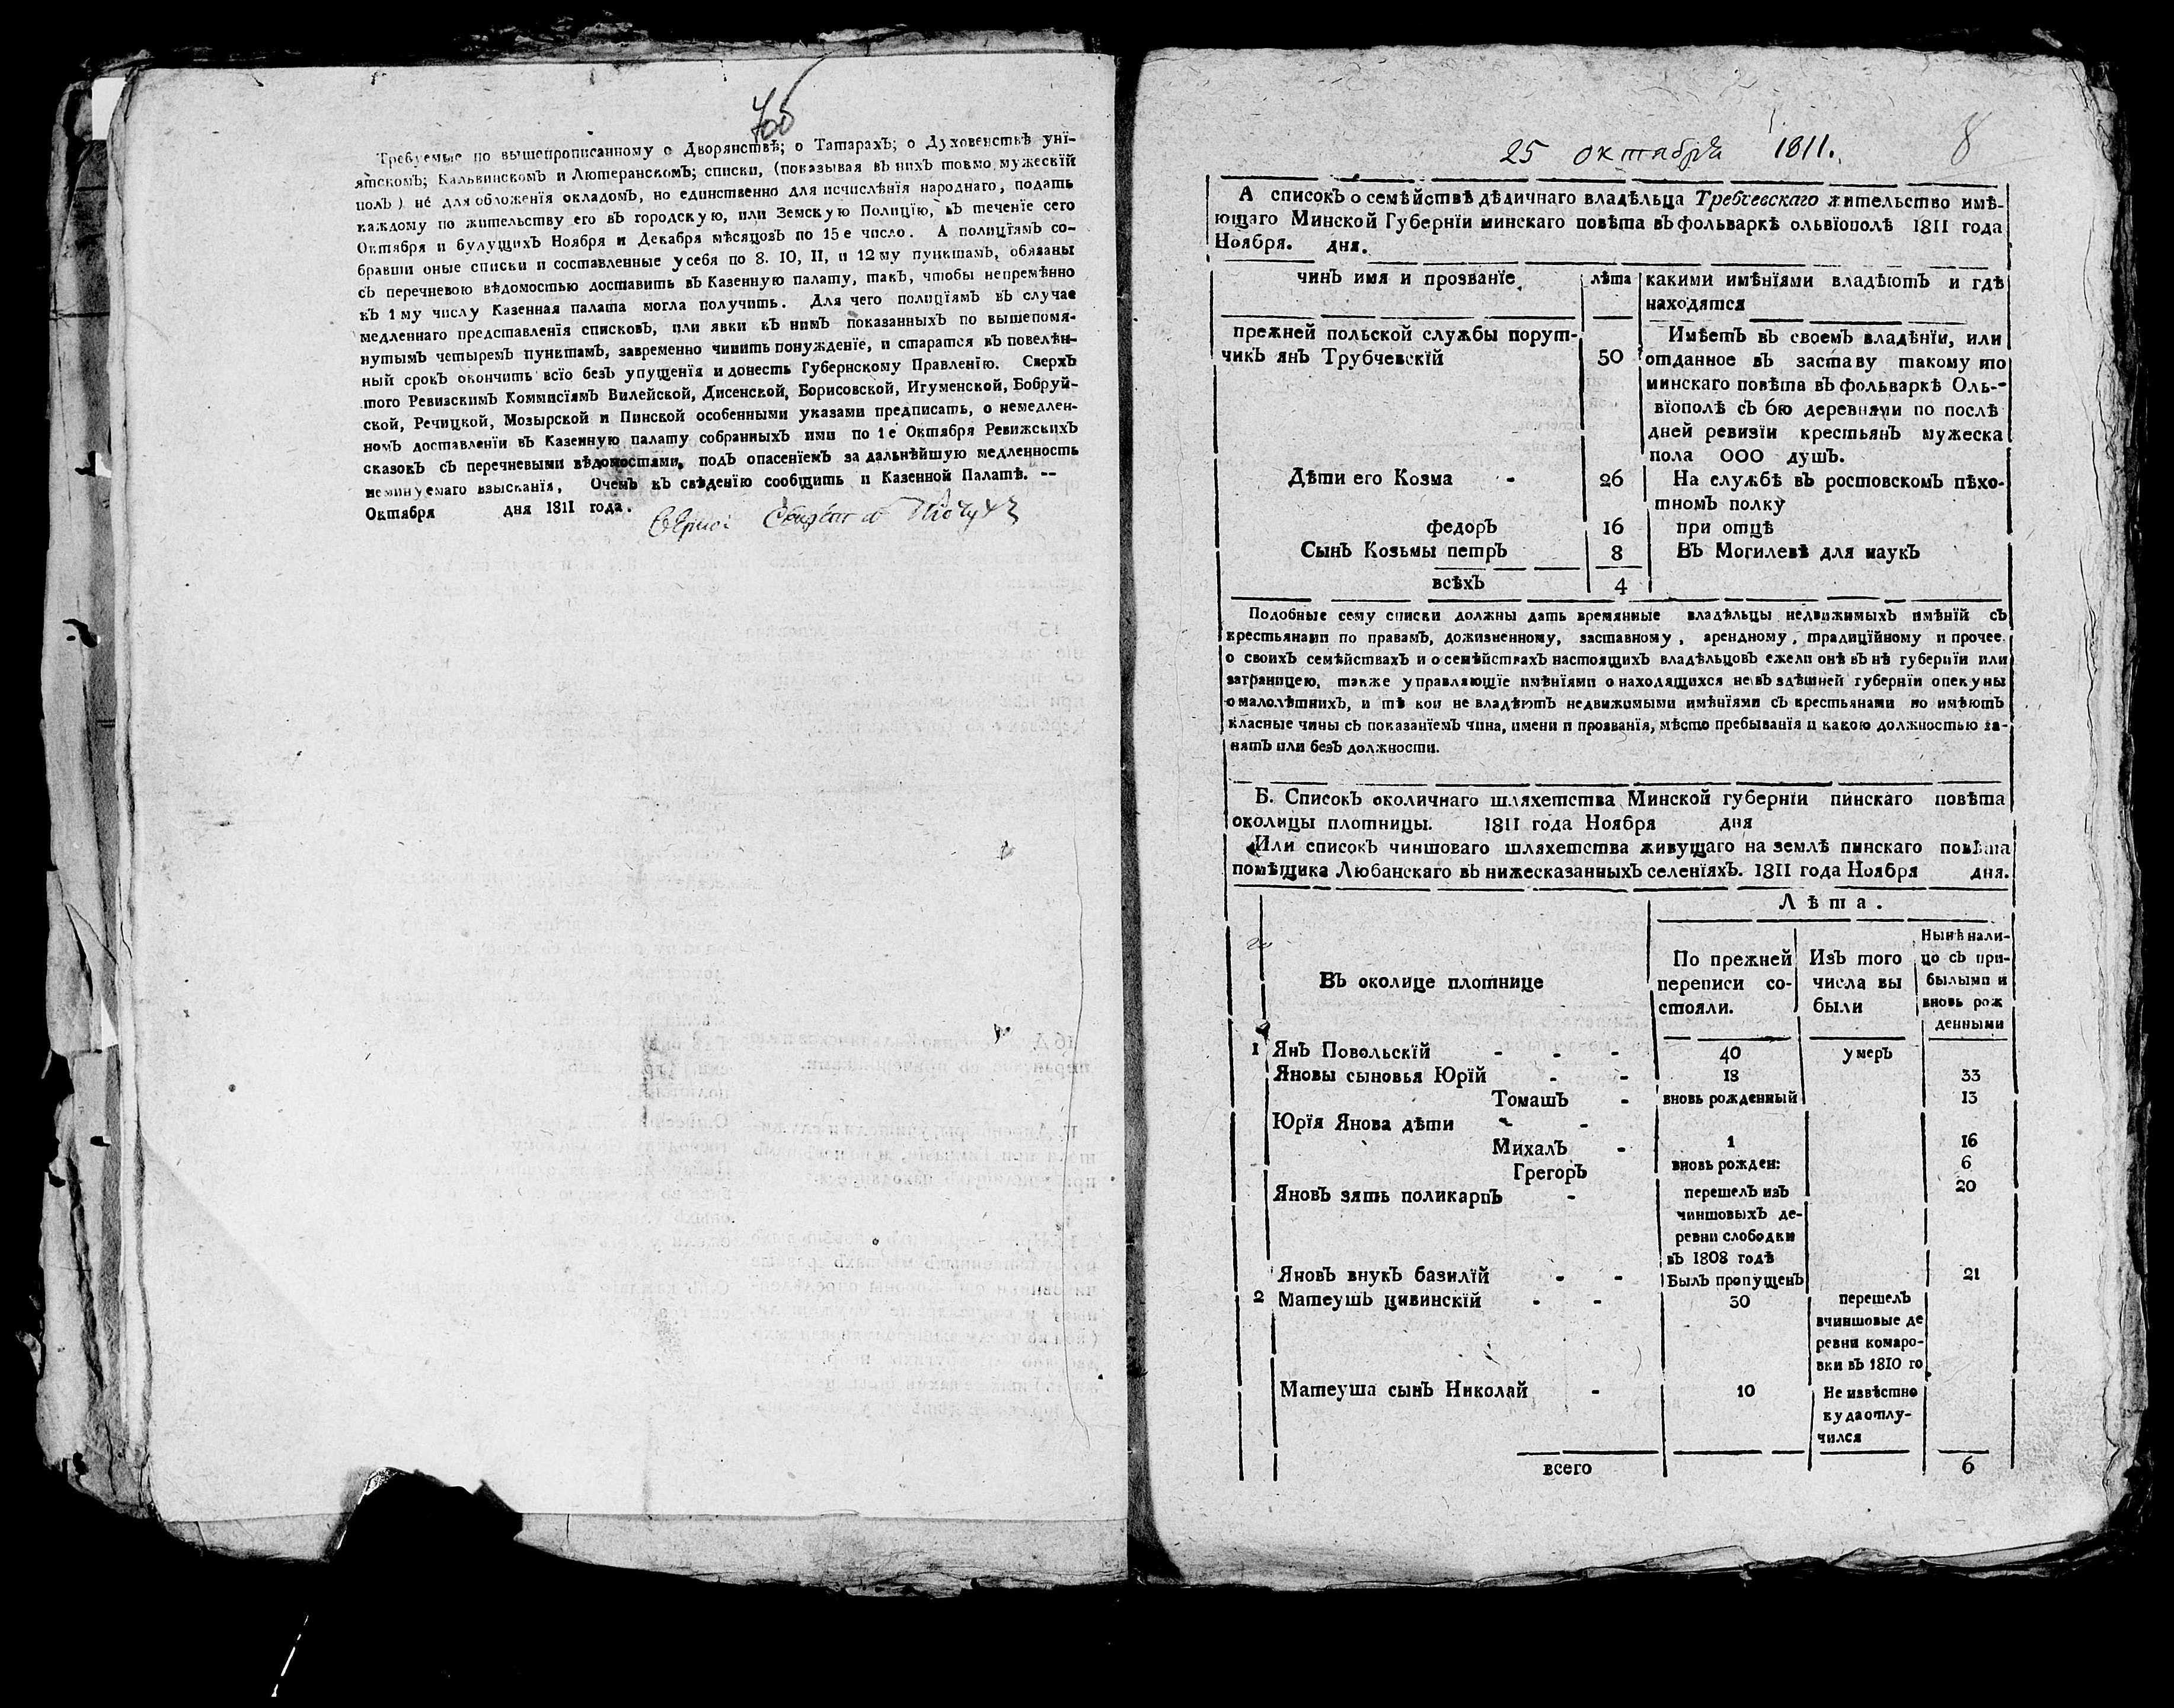 7об
Требуемые по вышепрописанному о Дворянствѣ; о Татарахъ; о Духовенствѣ унї-
ятскомъ; Кальвинскомъ и Лютеранскомъ; списки, (показывая въ нихъ токмо мужескїй
полъ) не для обложенїя окладомъ, но единственно для исчислѣнїя народнаго, подать
каждому по жительству его въ городскую, или Земскую Полицїю, въ теченїе сего
Октября и булущихъ Ноября и Декабря мѣсяцовъ по 15е число. А полицїямъ со-
бравши оные списки и составленные у себя по 8. 10, 11, и 12му пунктамъ, обязаны
съ перечневою вѣдомостью доставить въ Казенную палату, такъ, чтобы непремѣнно
къ 1му числу Казенная палата могла получить. Для чего полицїямъ въ случае
медленнаго представленїя списковъ, или явки къ нимъ показанныхъ по вышепомя-
нутымъ четыремъ пунктамъ, завременно чинить понужденїе, и старатся въ повелѣн-
ный срокъ окончить всїо безъ упущенїя и донесть Губернскому Правленїю. Сверхъ
того Ревизскимъ Коммисїямъ Вилейской, Дисенской, Борисовской, Игуменской, Бобруй-
ской, Речицкой, Мозырской и Пинской особенными указами предписать, о немедлен-
номъ доставленїи въ Казенную палату собранныхъ ими по 1е Октября Ревижскихъ
сказокъ съ перечневыми вѣдомостями, подъ опасенїемъ за дальнѣйшую медленность
неминуемаго взысканїя, Очемъ къ свѣденїю сообщить и Казенной Палатѣ. --
Октября дня 1811 года.
25 октября 1811.
8
А списокъ о семѣйствѣ дѣдичнаго владѣльца Требчевскаго жительство имѣ-
ющаго Минской Губернїи минскаго повѣта въ фольваркѣ ольвїополѣ 1811 года
Ноября. дня.
чинъ имя и прозванїе лѣта какими имѣнїями владѣютъ и гдѣ
находятся
прежней польской службы порут- Имѣетъ въ своемъ владѣнїи, или
чикъ янъ Трубчевскїй 50 отданное въ заставу такому то
минскаго повѣта въ фольваркѣ Оль-
вїополѣ съ 6ю деревнями по послѣ
дней ревизїи крестьянъ мужеска
пола 000 душъ.
Дѣти его Козма - 26 На службѣ въ ростовскомъ пѣхо-
тномъ полку
федоръ 16 при отцѣ
Сынъ Козьмы петръ 8 Въ Могилевѣ для наукъ
всѣхъ 4
Подобные сему списки должны дать времянные владѣльцы недвижимыхъ имѣнїй съ
крестьянами по правамъ, дожизненному, заставному, арендному, традицїйному и прочее.
о своихъ семѣйствахъ и о семѣйствахъ настоящихъ владѣльцовъ ежели онѣ въ нѣ губернїи или
заграницею, также управляющїе имѣнїями о находящихся не въ здѣшней губернїи опекуны
о малолѣтнихъ, и тѣ кои не владѣютъ недвижимыми имѣнїями съ крестьянами но имѣютъ
класные чины съ показанїемъ чина, имени и прозванїя, мѣсто пребыванїя и какою должностью за-
нятъ или безъ должности.
Б. Списокъ околичнаго шляхетства Минской губернїи пинскаго повѣта
околицы плотницы. 1811 года Ноября дня
Или списокъ чиншоваго шляхетства живущаго на землѣ пинскаго повѣта
помѣщика Любанскаго въ нижесказанныхъ селенїяхъ. 1811 года Ноября дня.
Лѣта.
Въ околице плотнице
По прежней
переписи со-
стояли.
Изъ того
числа вы
были
Нынѣ нали-
цо съ при-
былыми и
вновь рож
денными
1 Янъ Повольскїй - - - 40 умеръ
Яновы сыновья Юрїй - - 18 33
Томашъ - вновь рожденный 13
Юрїя Янова дѣти - -
Михалъ - 1 16
Грегоръ вновь рожден: 6
Яновъ зять поликарпъ - перешелъ изъ 20
чиншовыхъ де-
ревни слободки
въ 1808 годѣ
Яновъ внукъ базилїй - - Былъ пропущенъ 21
2 Матеушъ цивинскїй - - 30 перешелъ
вчиншовые де
ревни комаро-
вки въ 1810 го
Матеуша сынъ Николай - 10 Не извѣстно
куда отлу-
чился
всего 6